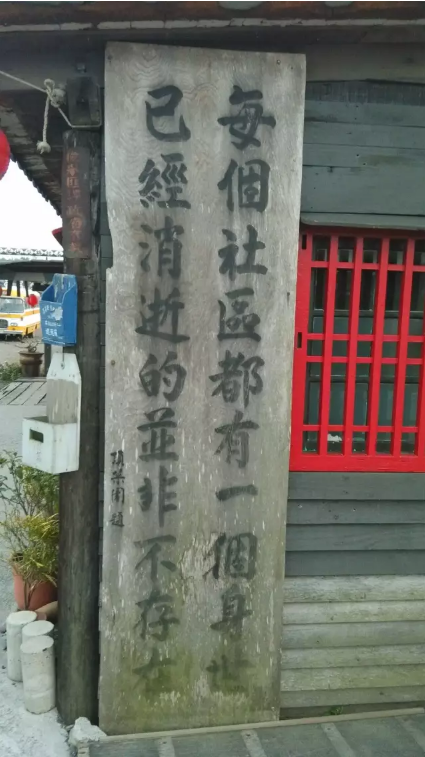 每個社區都有一個身世
已經消逝的並非不存在
頂菜園 題